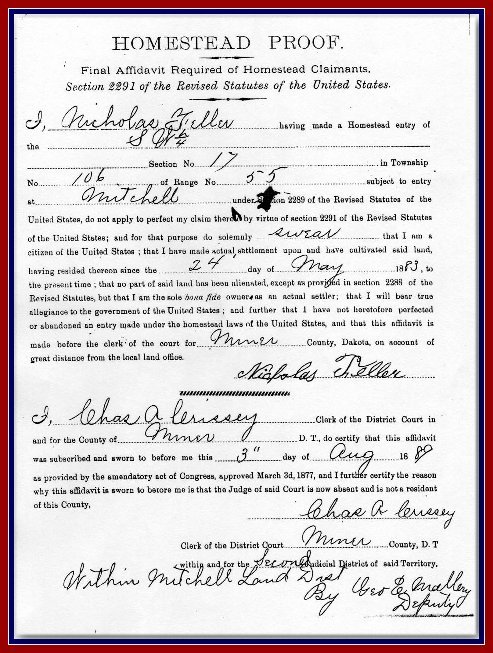 HOMESTEAD PROOF.
Final Affidavit Required of Homestead Claimants,
Section 2291 of the Revised Statutes of the United States.
I, Nicholas Feller having made a Homestead entry of
the S W 1/4
Section No. 17 in Township
No. 106 of Range No. 55 subject to entry
at Mitchell under section 2289 of the Revised Statutes of the
United States, do not apply to perfect my claim thereto by virtue of section 2291 of the Revised Statutes
of the United States; and for that purpose do solemnly swear that I am a
citizen of the United States; that I have made actual settlement upon and have cultivated said land,
having resided thereon since the 24 day of May 1883, to
the present time; that no part of said land has been alienated, except as provided in section 2288 of the
Revised Statutes, but that I am the sole bona fide owner as an actual settler; that I will bear true
allegiance to the government of the United States; and further that I have not heretofore perfected
or abandoned an entry made under the homestead laws of the United States, and that this affidavit is
made before the clerk of the court for Miner County, Dakota, on account of
great distance from the local land office.
Nicholas Feller
I, Chas A Crissey Clerk of the District Court in
and for the County of Miner D. T., do certify that this affidavit
was subscribed and sworn to before me this 3" day of Aug 1889
as provided by the amendatory act of Congress, approved March 3d, 1877, and I further certify the reason
why this affidavit is sworn to before me is that the Judge of said Court is now absent and is not a resident
of this County,
Chas A Crissey
Clerk of the District Court Miner County, D. T
within and for the Second Judicial District of said Territory,
Within Mitchell Land Dist
By Geo E Mallery
Deputy